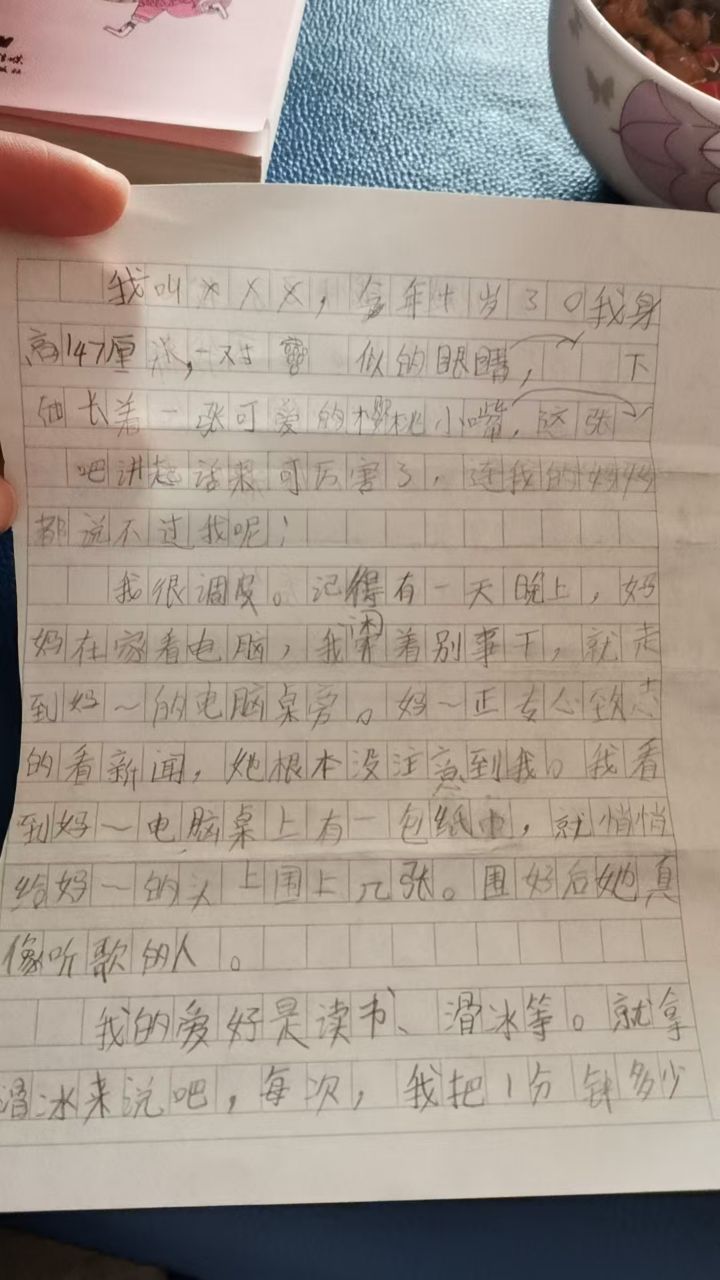 我叫×××，今年十岁了。我身
高147厘米，一对 似的眼睛， 下
面长着一张可爱的樱桃小嘴，这张
吧讲起话来可厉害了，连我的妈妈
都说不过我呢！
我很调皮。记得有一天晚上，妈
妈在家看电脑，我闲着别事干，就走
到妈～的电脑桌旁。妈～正专心致志
的看新闻，她根本没注意到我。我看
到妈～电脑桌上有一包纸巾，就悄悄
给妈～的头上围上几张。围好后她真
像听歌的人。
我的爱好是读书、滑冰等。就拿
滑冰来说吧，每次，我把1分钟多少